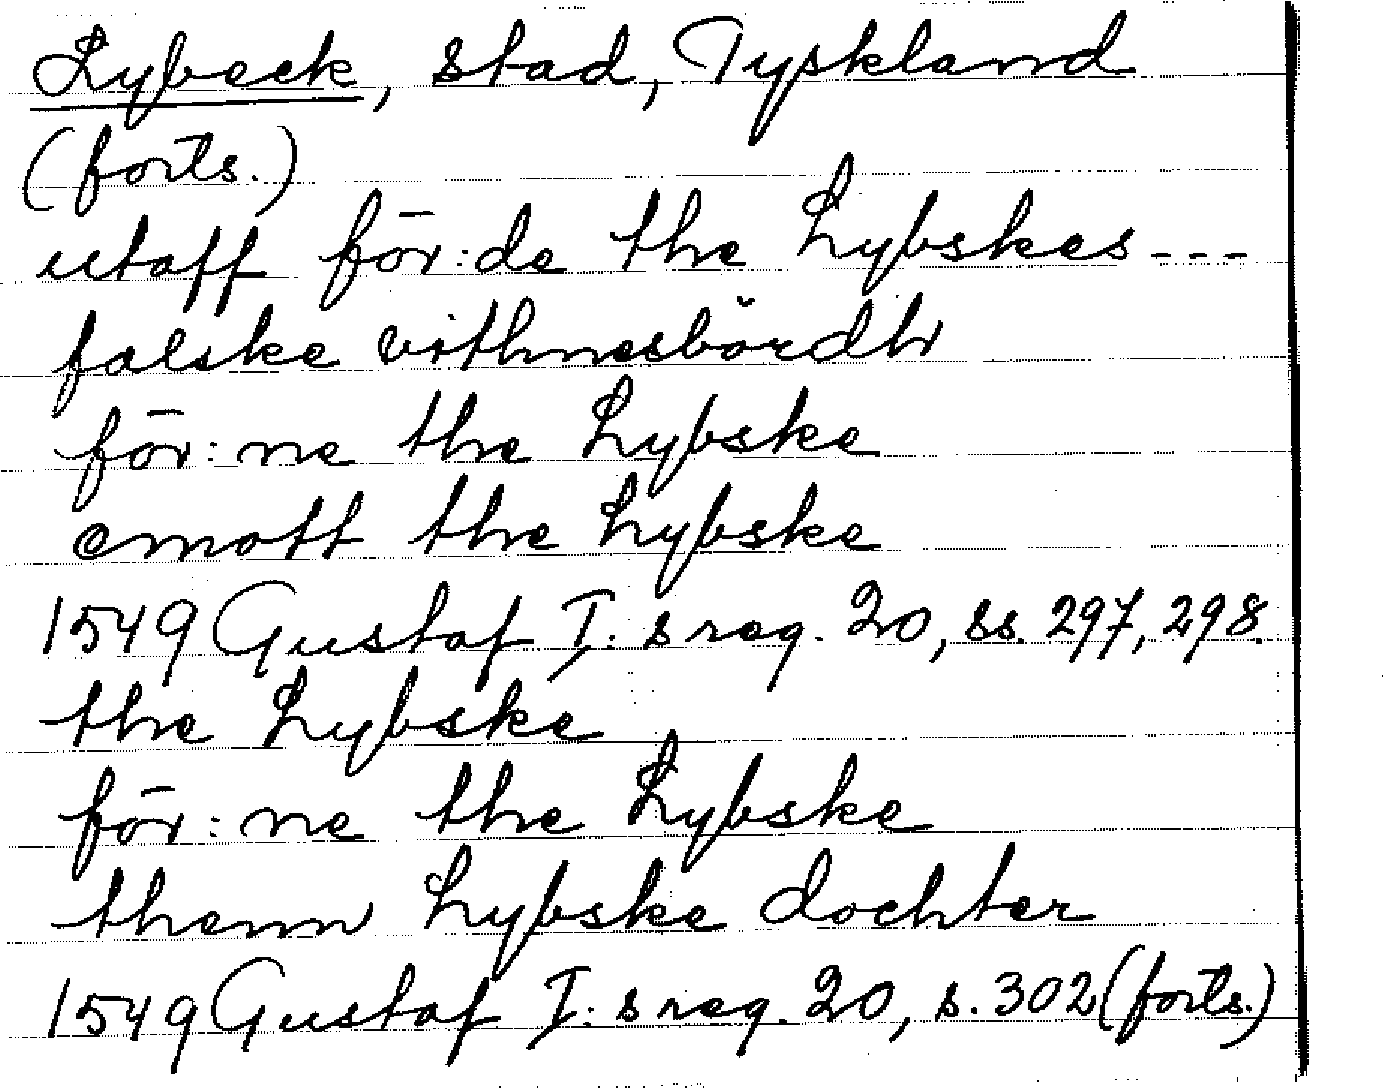 Lybeck, stad, Tyskland
(forts.)
utaff för:de the Lybskes---
falske vithnesbördh
för:ne the Lybske
emott the Lybske
1549 Gustaf I:s reg. 20, ss. 297, 298.
the Lybske
för:ne the Lybske
thenn Lybske dochter
1549 Gustaf I:s reg. 20, s. 302 (forts.)